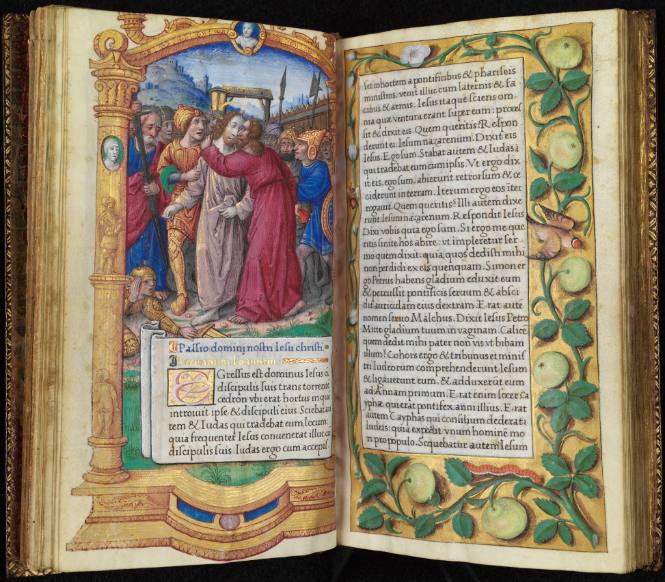 Passio domini nostri Iesu christi
Gressus est dominus Iesus cū
discipulis suis trans torrentē
cedron vbi erat hortus in quē
introiuit ipse & discipuli eius Sciebat au
tem & Iudas qui tradebat eum locum:
quia frequenter Iesus conuenerat illuc cū
discipulis suis. Iudas ergo cum accepis
set cohortem a pontificibus & phariseis
ministros, venit illuc cum laternis & fa
cibus & armis. Iesus itaque sciens om
nia que ventura erant super eum: proces
sit & dixit eis. Quem queritis? Respon
derunt ei. Iesum nazarenum. Dixit eis
Iesus. Ego sum. Stabat autem & Iudas
qui tradebat eum cum ipsis. Vt ergo dix
it eis, ego sum, abierunt retrorsum & ce
ciderunt in terram. Iterum ergo eos inter
rogauit. Quem queritis? Illi autem dixe
runt Iesum nazarenum. Respondit Iesus
Dixi vobis quia ego sum. Si ergo me que
ritis sinite hos abire. vt impleretur ser
mo quem dixit. quia quos dedisti mihi
non perdidi ex eis quenquam. Simon er
go Petrus habens gladium eduxit eum
& percussit pontificis seruum & absci
dit auriculam eius dextram. Erat aute
nomen seruo Malchus. Dixit Iesus Petro
Mitte gladium tuum in vaginam. Calicē
quem dedit mihi pater non vis vt bibam
illum? Cohors ergo & tribunus et minis
tri Iudeorum comprehenderunt Iesum
& ligauerunt eum. & adduxerūt eum
ad Annam primum. Erat enim socer Ca
yphe, qui erat pontifex anni illius. Erat
autem Cayphas qui consilium dederat
Iudeis: quia expedit vnum hominē mo
ri pro populo. Sequebatur autem Iesum